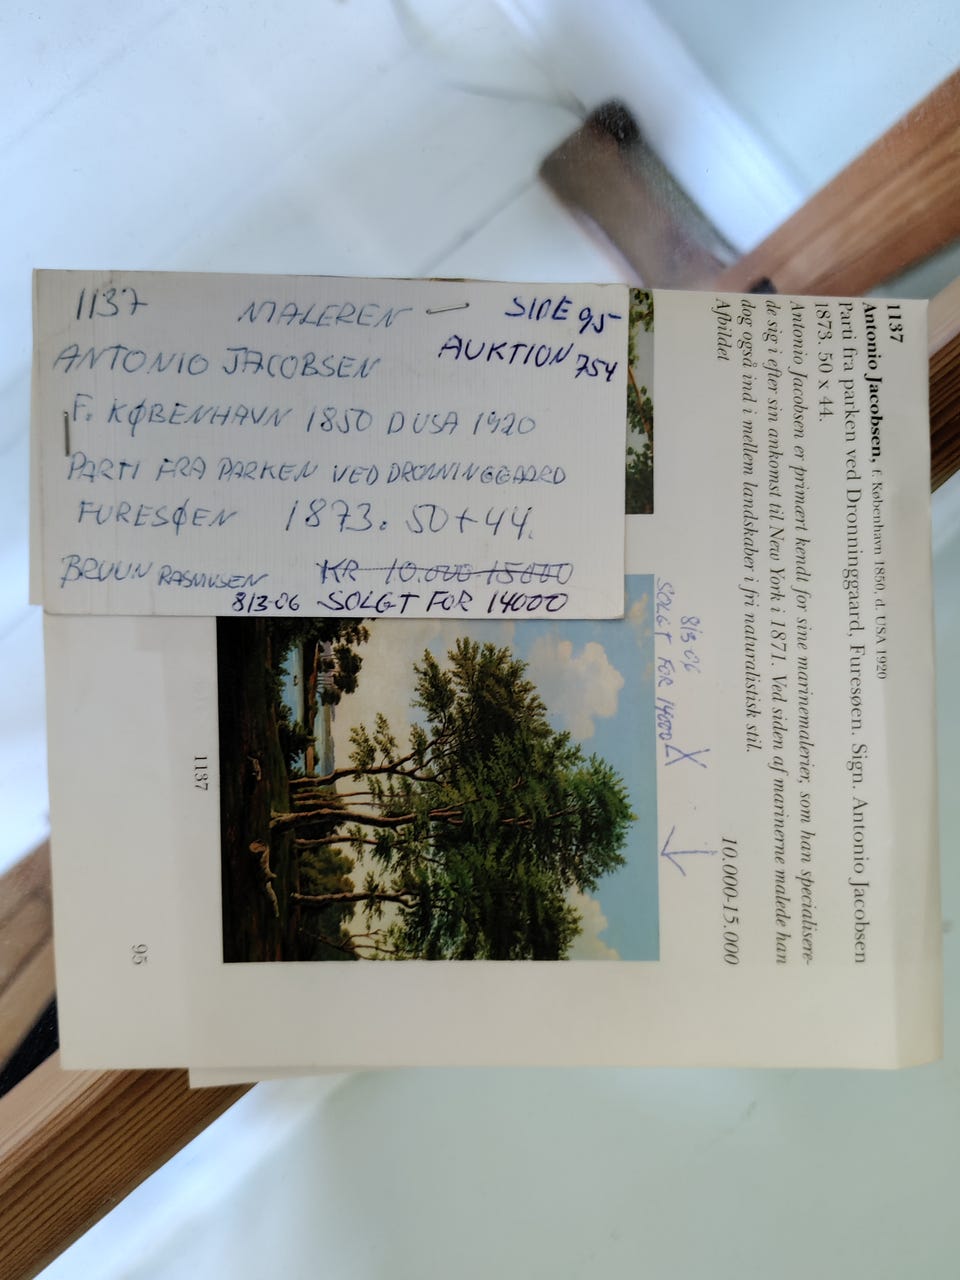 1137 MALEREN SIDE 95
ANTONIO JACOBSEN AUKTION 754
F. KØBENHAVN 1850 D USA 1920
PARTI FRA PARKEN VED DRONNINGGAARD
FURESØEN 1873. 50+44.
BRUUN RASMUSEN KR 10.000-15000
8/3-06 SOLGT FOR 14000
1137
Antonio Jacobsen, f. København 1850, d. USA 1920
Parti fra parken ved Dronninggaard, Furesøen. Sign. Antonio Jacobsen
1873. 50 x 44.
Antonio Jacobsen er primært kendt for sine marinemalerier, som han specialisere-
de sig i efter sin ankomst til New York i 1871. Ved siden af marinerne malede han
dog også ind i mellem landskaber i fri naturalistisk stil.
Afbildet
10.000-15.000
8/3-06
SOLGT FOR 14000 X
1137
95